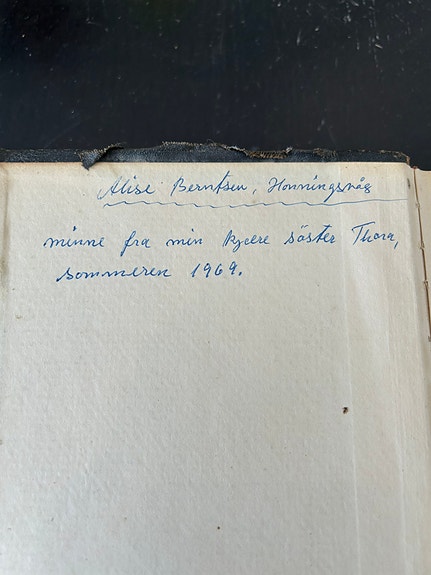 Alise Berntsen, Honningsvåg
minne fra min kjære söster Thora,
sommeren 1969.